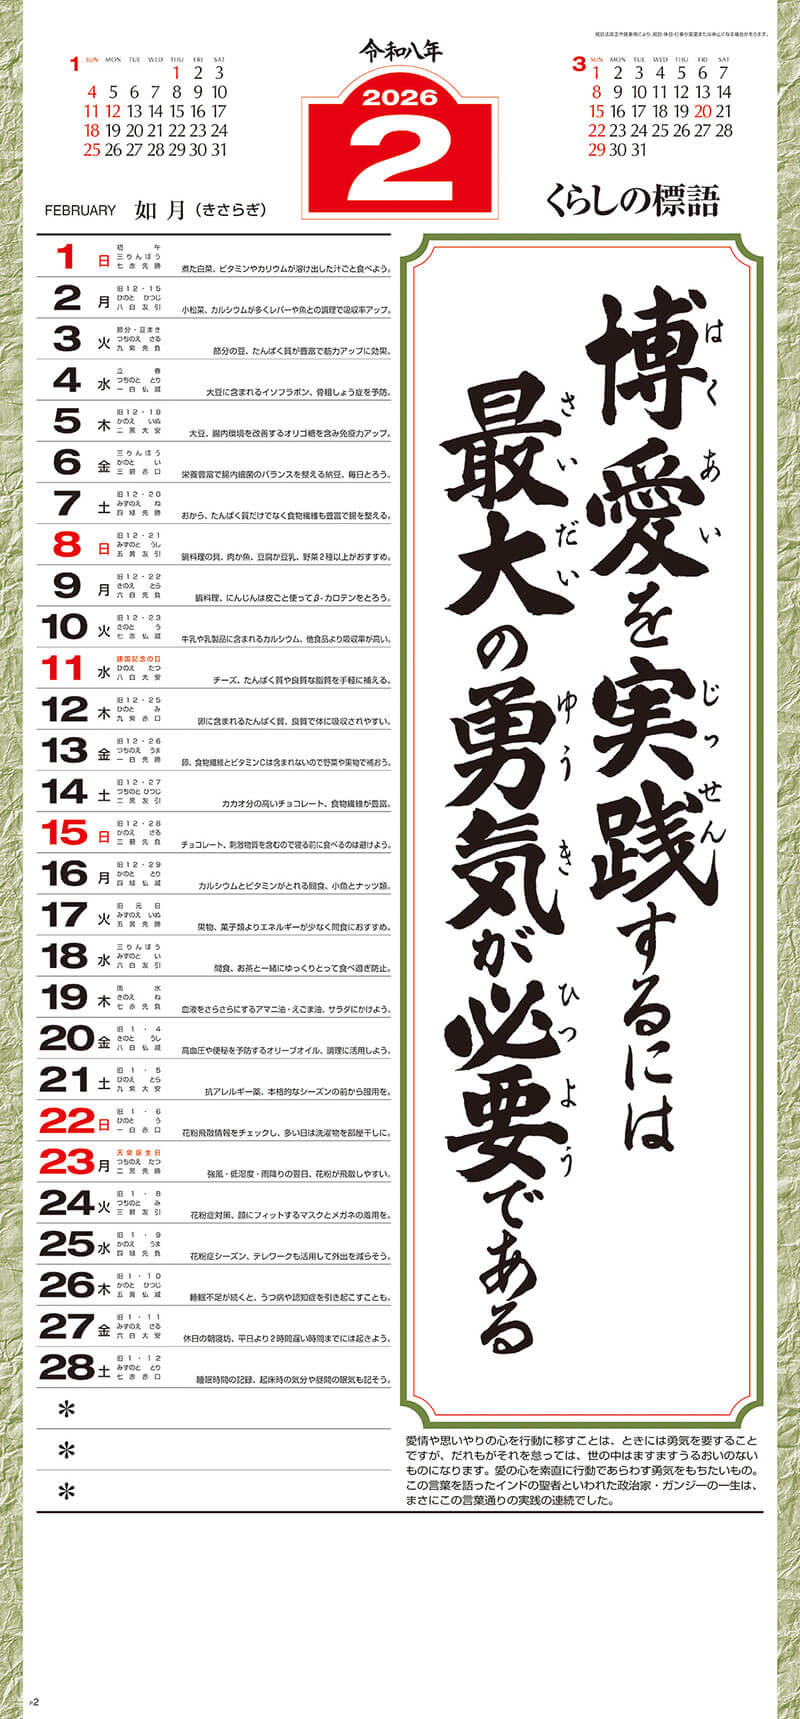 祝日法改正や諸事情により、祝日・休日・行事が変更または中止になる場合があります。
令和八年
2026
2
1
SUN MON TUE WED THU FRI SAT
1 2 3
4 5 6 7 8 9 10
11 12 13 14 15 16 17
18 19 20 21 22 23 24
25 26 27 28 29 30 31
3
SUN MON TUE WED THU FRI SAT
1 2 3 4 5 6 7
8 9 10 11 12 13 14
15 16 17 18 19 20 21
22 23 24 25 26 27 28
29 30 31
FEBRUARY 如月(きさらぎ)
くらしの標語
1 日 初午 三りんぼう 七赤先勝 煮た白菜、ビタミンやカリウムが溶け出した汁ごと食べよう。
2 月 旧12・15 ひのと ひつじ 八白友引 小松菜、カルシウムが多くレバーや魚との調理で吸収率アップ。
3 火 節分・豆まき つちのえ さる 九紫先負 節分の豆、たんぱく質が豊富で筋力アップに効果。
4 水 立春 つちのと とり 一白仏滅 大豆に含まれるイソフラボン、骨粗しょう症を予防。
5 木 旧12・18 かのえ いぬ 二黒大安 大豆、腸内環境を改善するオリゴ糖を含み免疫力アップ。
6 金 三りんぼう かのと い 三碧赤口 栄養豊富で腸内細菌のバランスを整える納豆、毎日とろう。
7 土 旧12・20 みずのえ ね 四緑先勝 おから、たんぱく質だけでなく食物繊維も豊富で腸を整える。
8 日 旧12・21 みずのと うし 五黄友引 鍋料理の具、肉か魚、豆腐か豆乳、野菜2種以上がおすすめ。
9 月 旧12・22 きのえ とら 六白先負 鍋料理、にんじんは皮ごと使ってβ-カロテンをとろう。
10 火 旧12・23 きのと う 七赤仏滅 牛乳や乳製品に含まれるカルシウム、他食品より吸収率が高い。
11 水 建国記念の日 ひのえ たつ 八白大安 チーズ、たんぱく質や良質な脂質を手軽に補える。
12 木 旧12・25 ひのと み 九紫赤口 卵に含まれるたんぱく質、良質で体に吸収されやすい。
13 金 旧12・26 つちのえ うま 一白先勝 卵、食物繊維とビタミンCは含まれないので野菜や果物で補おう。
14 土 旧12・27 つちのと ひつじ 二黒友引 カカオ分の高いチョコレート、食物繊維が豊富。
15 日 旧12・28 かのえ さる 三碧先負 チョコレート、刺激物質を含むので寝る前に食べるのは避けよう。
16 月 旧12・29 かのと とり 四緑仏滅 カルシウムとビタミンがとれる間食、小魚とナッツ類。
17 火 旧元日 みずのえ いぬ 五黄先勝 果物、菓子類よりエネルギーが少なく間食におすすめ。
18 水 三りんぼう みずのと い 六白友引 間食、お茶と一緒にゆっくりとって食べ過ぎ防止。
19 木 雨水 きのえ ね 七赤先負 血液をさらさらにするアマニ油・えごま油、サラダにかけよう。
20 金 旧1・4 きのと うし 八白仏滅 高血圧や便秘を予防するオリーブオイル、調理に活用しよう。
21 土 旧1・5 ひのえ とら 九紫大安 抗アレルギー薬、本格的なシーズンの前から服用を。
22 日 旧1・6 ひのと う 一白赤口 花粉飛散情報をチェックし、多い日は洗濯物を部屋干しに。
23 月 天皇誕生日 つちのえ たつ 二黒先勝 強風・低湿度・雨降りの翌日、花粉が飛散しやすい。
24 火 旧1・8 つちのと み 三碧友引 花粉症対策、顔にフィットするマスクとメガネの着用を。
25 水 旧1・9 かのえ うま 四緑先負 花粉症シーズン、テレワークも活用して外出を減らそう。
26 木 旧1・10 かのと ひつじ 五黄仏滅 睡眠不足が続くと、うつ病や認知症を引き起こすことも。
27 金 旧1・11 みずのえ さる 六白大安 休日の朝寝坊、平日より2時間遅い時間までには起きよう。
28 土 旧1・12 みずのと とり 七赤赤口 睡眠時間の記録、起床時の気分や昼間の眠気も記そう。
*
*
*
博愛を実践するには
はくあい じっせん
最大の勇気が必要である
さいだい ゆうき ひつよう
愛情や思いやりの心を行動に移すことは、ときには勇気を要すること
ですが、だれもがそれを怠っては、世の中はますますうるおいのない
ものになります。愛の心を素直に行動であらわす勇気をもちたいもの。
この言葉を語ったインドの聖者といわれた政治家・ガンジーの一生は、
まさにこの言葉通りの実践の連続でした。
P2